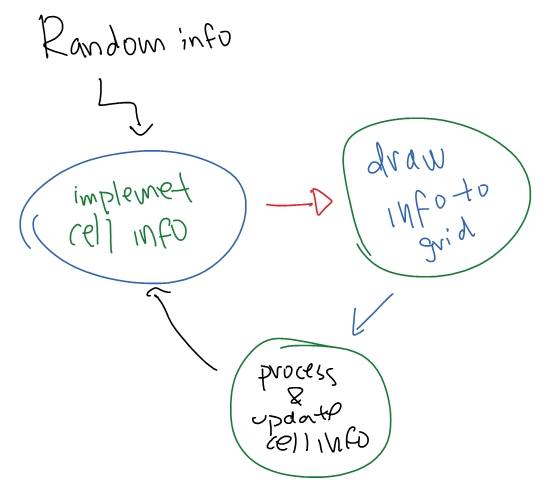 Random info
implemet
cell info
draw
info to
grid
process
&
update
cell info